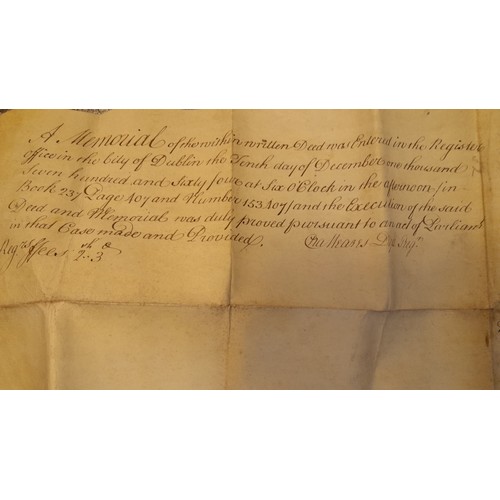 A Memorial of the within written Deed was Entered in the Register
office in the City of Dublin the Tenth day of December one thousand
Seven hundred and Sixty four at Six o'Clock in the afternoon in
Book 237 Page 107 and Number 153107 and the Execution of the said
Deed and Memorial was duly proved pursuant to an act of Parliamt
in that Case made and Provided.
Regrs ffees 2..3